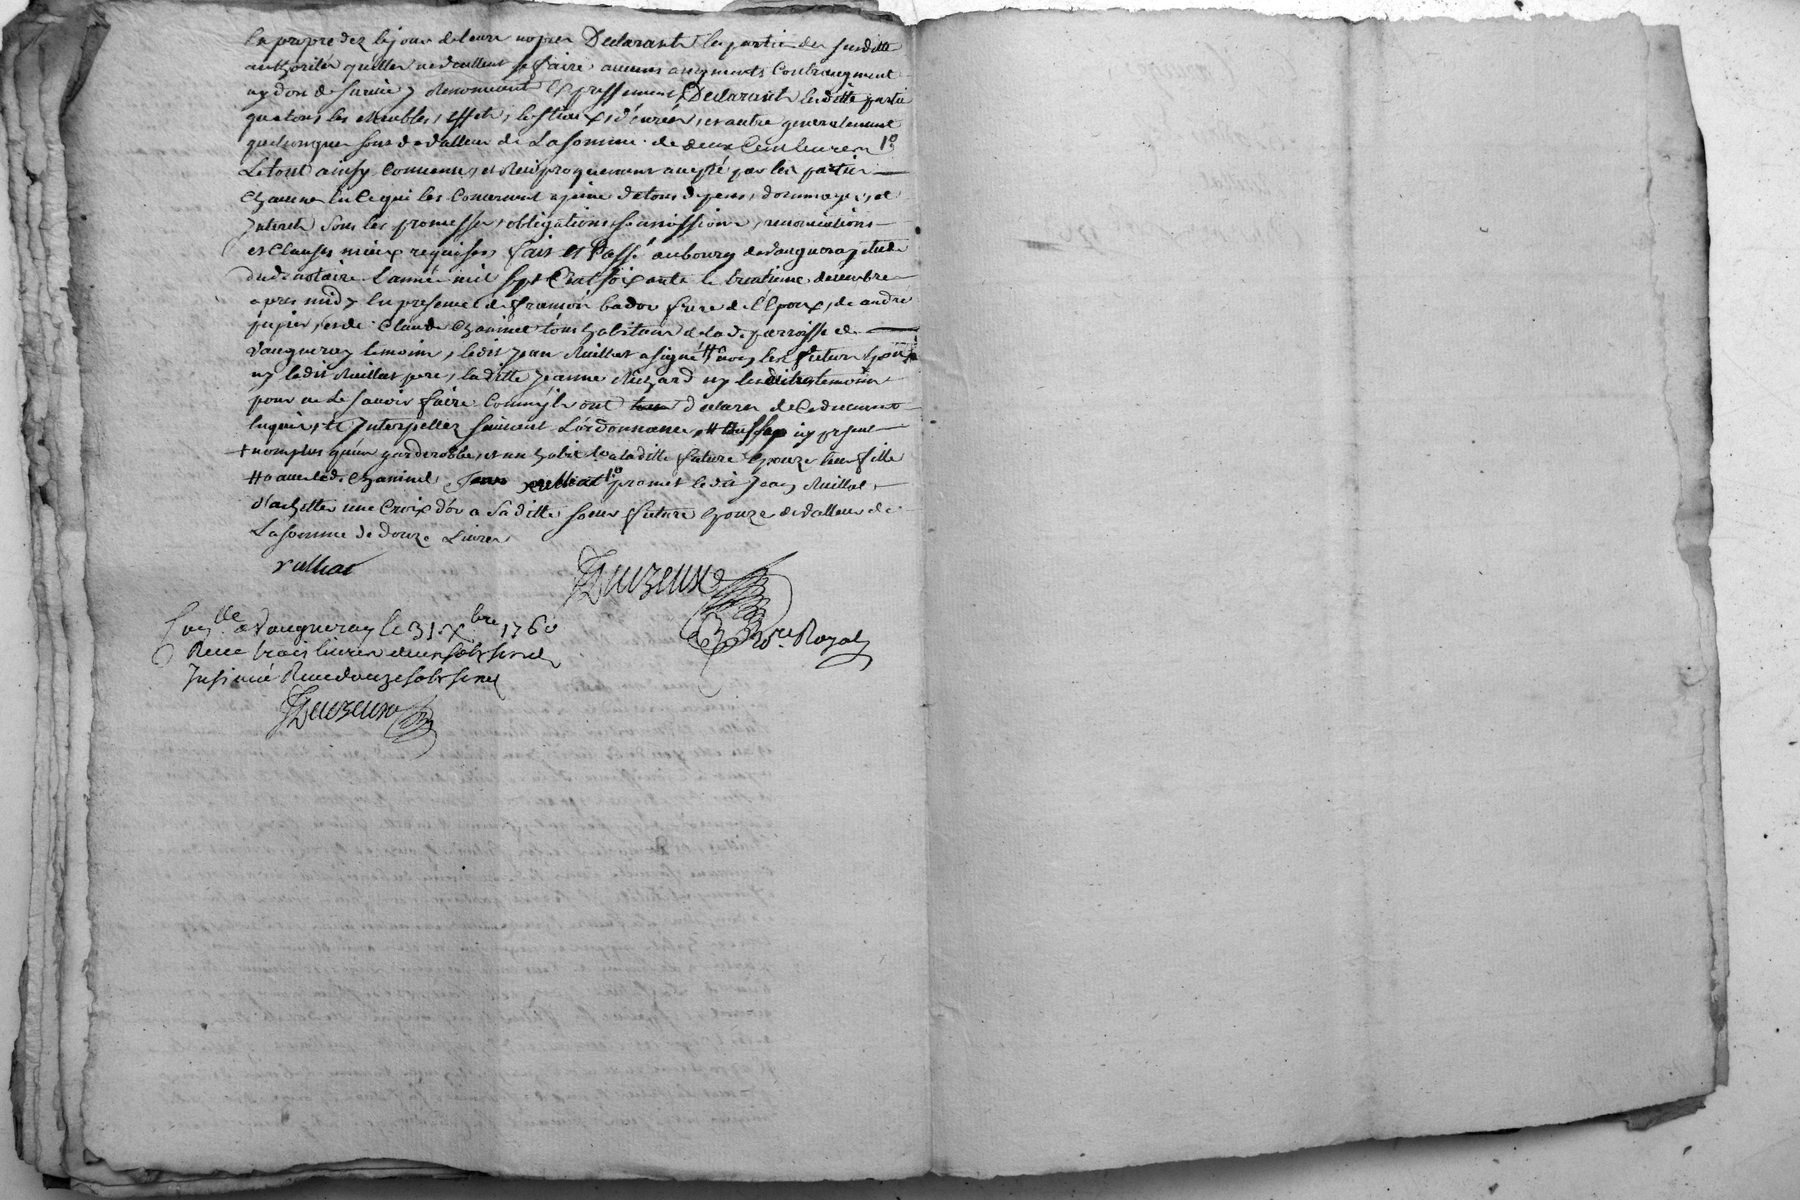 la propre dez le jour de leurs nopces Declarants les parties des susdittes
authorités quelles ne veullent se faire aucuns augments Contraugment
ny don de survie y Renonceant Expressement Declarants lesditte partie
que tous les Meubles, effets, bestiaux, denrées, et autre generalement
quelconques sont de valleur de La somme de deux Cent livres
Le tout ainsy Convenu, et Reciproquement accepté par les parties
Chacune En Ce qui les Concernent a peine de tous depens, dommages, et
Interets sous les promesses, obligations soumissions, renonciations
et Clauses mieux requises fait et Passé au bourg de vaugneray etude
dudt notaire l'année mil sept Cent soixante le trentieme decembre
apres midy En presence de françois bador frere de l'Epoux, de andré
jupier, et de Claude Chaninel tous habitans de lad. parroisse de
vaugneray temoins, ledit jean Ruillat a signé # non les futurs Epoux
ny ledit Ruillat pere, laditte jeanne Richard ny les autres temoins
pour ne Le savoir faire Comme ils ont declaré de Ce duement
Enquis, et Interpellez suivant L'ordonnance,
+ non plus qu'un garderobbe, et un habit a laditte future Epouze leur fille
# avec led. Chaninel, promet ledit jean Ruillat
d'achetter une Croix d'or a sa ditte soeur future Epouze de valleur de
La somme de douze Livres
rulliat
Duzeux
nore. Royal
Conlle a Vaugneray le 31. xbre 1760
Receu trois livres douze sols six d
Insinué Receu douze sols six d
Duzeux